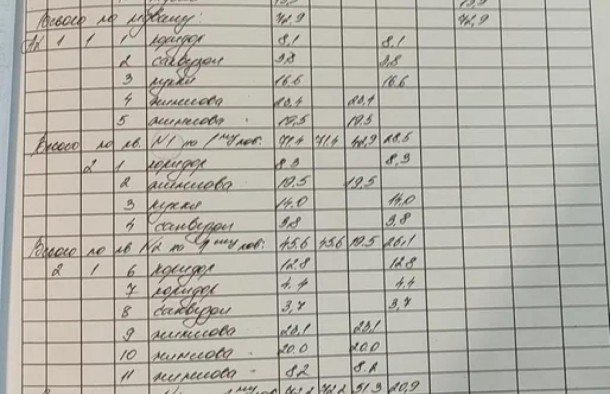 Всього по підвалу: 72,9 72,9
А2 1 1 1 коридор 8,1 8,1
2 санвузол 3,8 3,8
3 кухня 16,6 16,6
4 житлова 23,4 23,4
5 житлова 19,5 19,5
Всього по кв. N1 по 1му пов: 71,4 71,4 42,9 28,5
2 1 коридор 8,3 8,3
2 житлова 19,5 19,5
3 кухня 14,0 14,0
4 санвузол 3,8 3,8
Всього по кв N2 по 1му пов: 45,6 45,6 19,5 26,1
2 1 6 коридор 12,8 12,8
7 коридор 4,4 4,4
8 санвузол 3,7 3,7
9 житлова 23,1 23,1
10 житлова 20,0 20,0
11 житлова 8,2 8,2
72,2 72,2 51,3 20,9